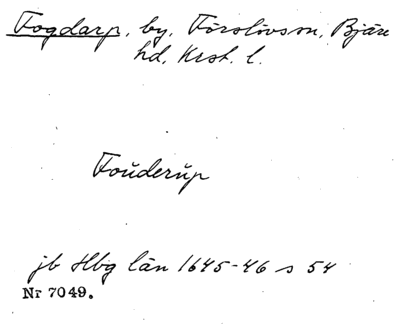 Fogdarp, by, Förslövs sn, Bjäre
hd, Krst. l.
Foŭderŭp
jb Hbg län 1645-46 s 54
Nr 7049.